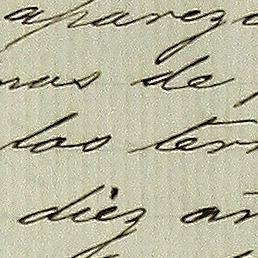 aparez
mas de
los ter
diez añ